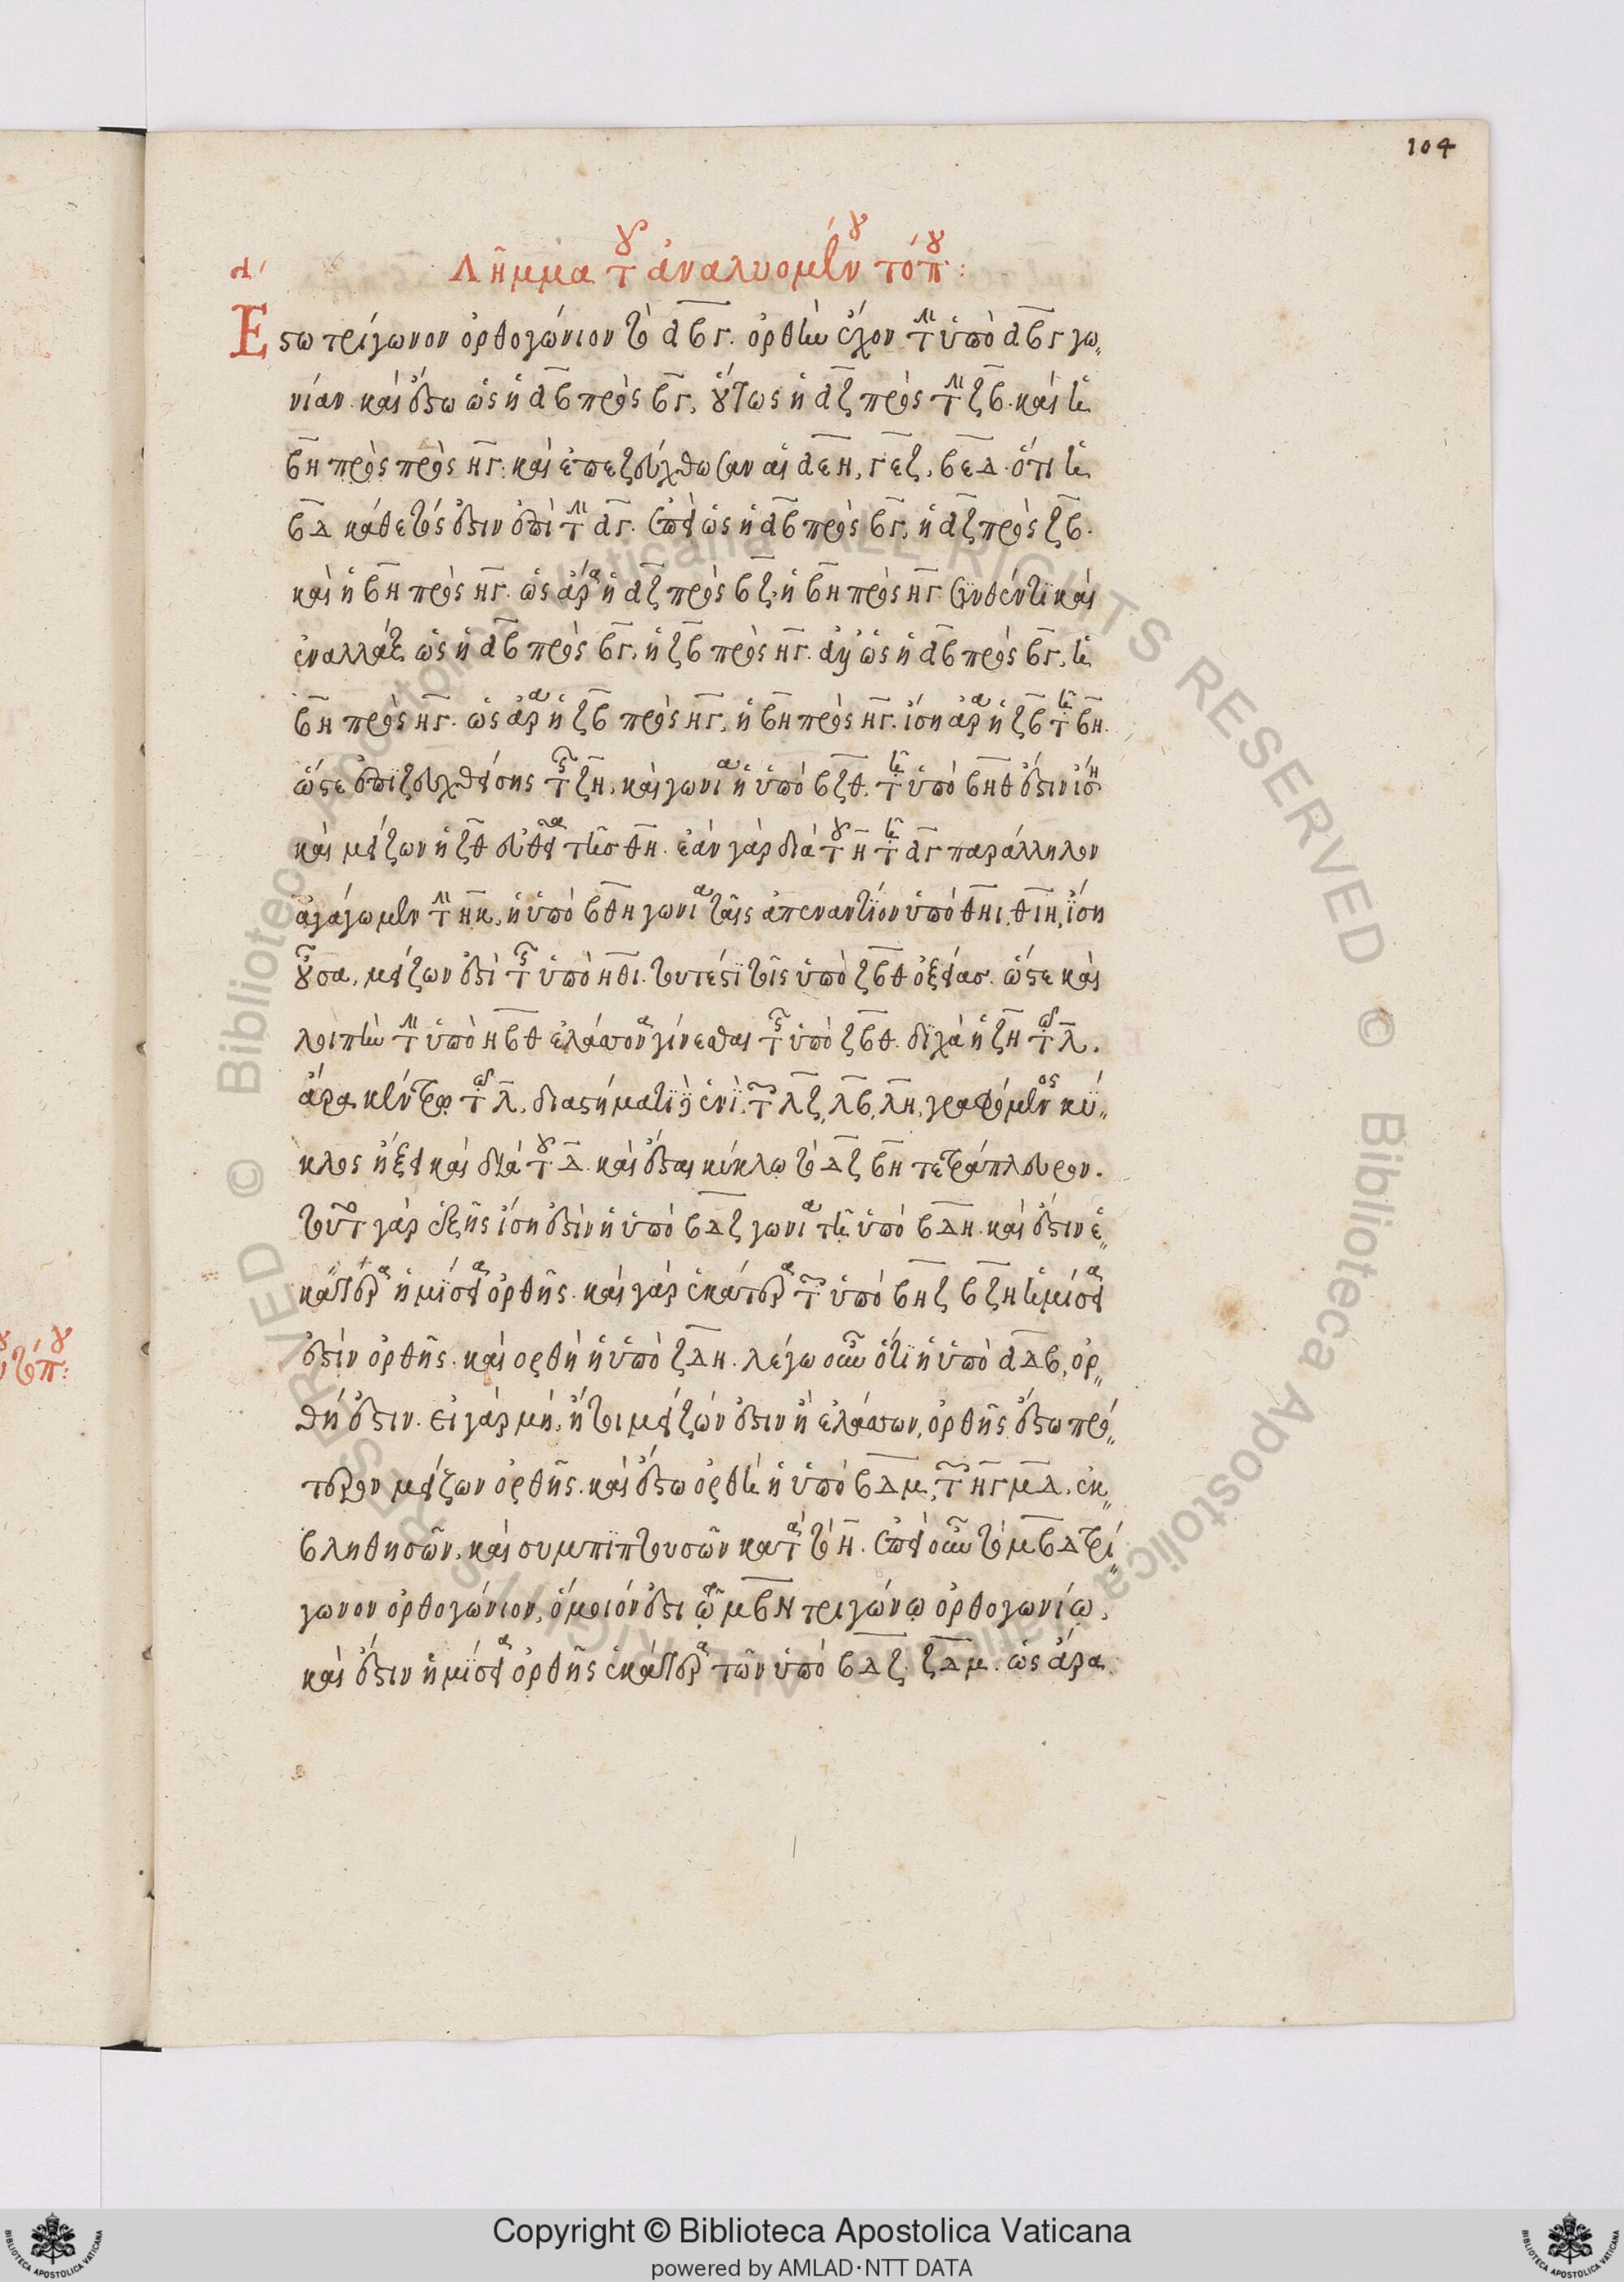 104
α΄ Λῆμμα τοῦ ἀναλυομένου τόπου:
Ἔστω τρίγωνον ὀρθογώνιον τὸ αβγ. ὀρθὴν ἔχον τὴν ὑπὸ αβγ γω„
νίαν. καὶ ἔστω ὡς ἡ αβ πρὸς βγ, οὕτως ἡ αζ πρὸς τὴν ζβ. καὶ ἡ
βη πρὸς πρὸς ηγ. καὶ ἐπεζεύχθωσαν αἱ αεη, γεζ, βεδ. ὅτι ἡ
βδ κάθετός ἐστιν ἐπὶ τὴν αγ. ἐπεὶ ὡς ἡ αβ πρὸς βγ, ἡ αζ πρὸς ζβ.
καὶ ἡ βη πρὸς ηγ. ὡς ἄρα ἡ αζ πρὸς βζ, ἡ βη πρὸς ηγ. συνθέντι καὶ
ἐναλλὰξ ὡς ἡ αβ πρὸς βγ, ἡ ζβ πρὸς ηγ. ἀλλ' ὡς ἡ αβ πρὸς βγ, ἡ
βη πρὸς ηγ. ὡς ἄρα ἡ ζβ πρὸς ηγ, ἡ βη πρὸς ηγ. ἴση ἄρα ἡ ζβ τῇ βη.
ὥστε ἐπιζευχθείσης τῆς ζη, καὶ γωνία ἡ ὑπὸ βζθ, τῇ ὑπὸ βηθ ἐστιν ἴση
καὶ μείζων ἡ ζθ εὐθεῖα τῆς θη. ἐὰν γὰρ διὰ τοῦ η τῇ αγ παράλληλον
ἀγάγωμεν τὴν ηκ, ἡ ὑπὸ βθη γωνία ταῖς ἀπεναντίον ὑπὸ θηι, θιη, ἴση
οὖσα, μείζων ἐστὶ τῆς ὑπὸ ηθι. τουτέστι τῆς ὑπὸ ζβθ ὀξείας. ὥστε καὶ
λοιπὴν τὴν ὑπὸ ηβθ ἐλάττονα γίνεσθαι τῆς ὑπὸ ζβθ. δίχα ἡ ζη τῷ λ.
ἄρα κέντρῳ τῷ λ, διαστήματι δὲ ἑνὶ τῶν λζ, λβ, λη, γραφόμενος κύ„
κλος ἥξει καὶ διὰ τοῦ δ. καὶ ἔσται κύκλῳ τὸ δζβη τετράπλευρον.
τούτων γὰρ ἑξῆς ἴση ἐστὶν ἡ ὑπὸ βδζ γωνία τῇ ὑπὸ βδη. καὶ ἔστιν ἑ„
κατέρα ἡμίσεια ὀρθῆς. καὶ γὰρ ἑκατέρα τῶν ὑπὸ βηζ βζη ἡμίσεια
ἐστὶν ὀρθῆς. καὶ ορθὴ ἡ ὑπὸ ζδη. λέγω οὖν ὅτι ἡ ὑπὸ αδβ, ὀρ„
θή ἐστιν. εἰ γὰρ μή, ἤτοι μείζων ἐστὶν ἢ ἐλάττων, ὀρθῆς. ἔστω πρό„
τερον μείζων ὀρθῆς. καὶ ἔστω ὀρθὴ ἡ ὑπὸ βδμ, τῶν ηγ μδ, ἐκ„
βληθησῶν, καὶ συμπιπτουσῶν κατὰ τὸ η. ἐπεὶ οὖν τὸ μβδ τρί„
γωνον ὀρθογώνιον, ὅμοιόν ἐστι τῷ μβη τριγώνῳ ὀρθογωνίῳ,
καὶ ἔστιν ἡμίσεια ὀρθῆς ἑκατέρα τῶν ὑπὸ βδζ, ζδμ. ὡς ἄρα
© Biblioteca Apostolica Vaticana ALL RIGHTS RESERVED © Biblioteca Apostolica Vaticana ALL RIGHTS RESERVED
Copyright © Biblioteca Apostolica Vaticana
powered by AMLAD·NTT DATA
BIBLIOTECA APOSTOLICA VATICANA
BIBLIOTECA APOSTOLICA VATICANA